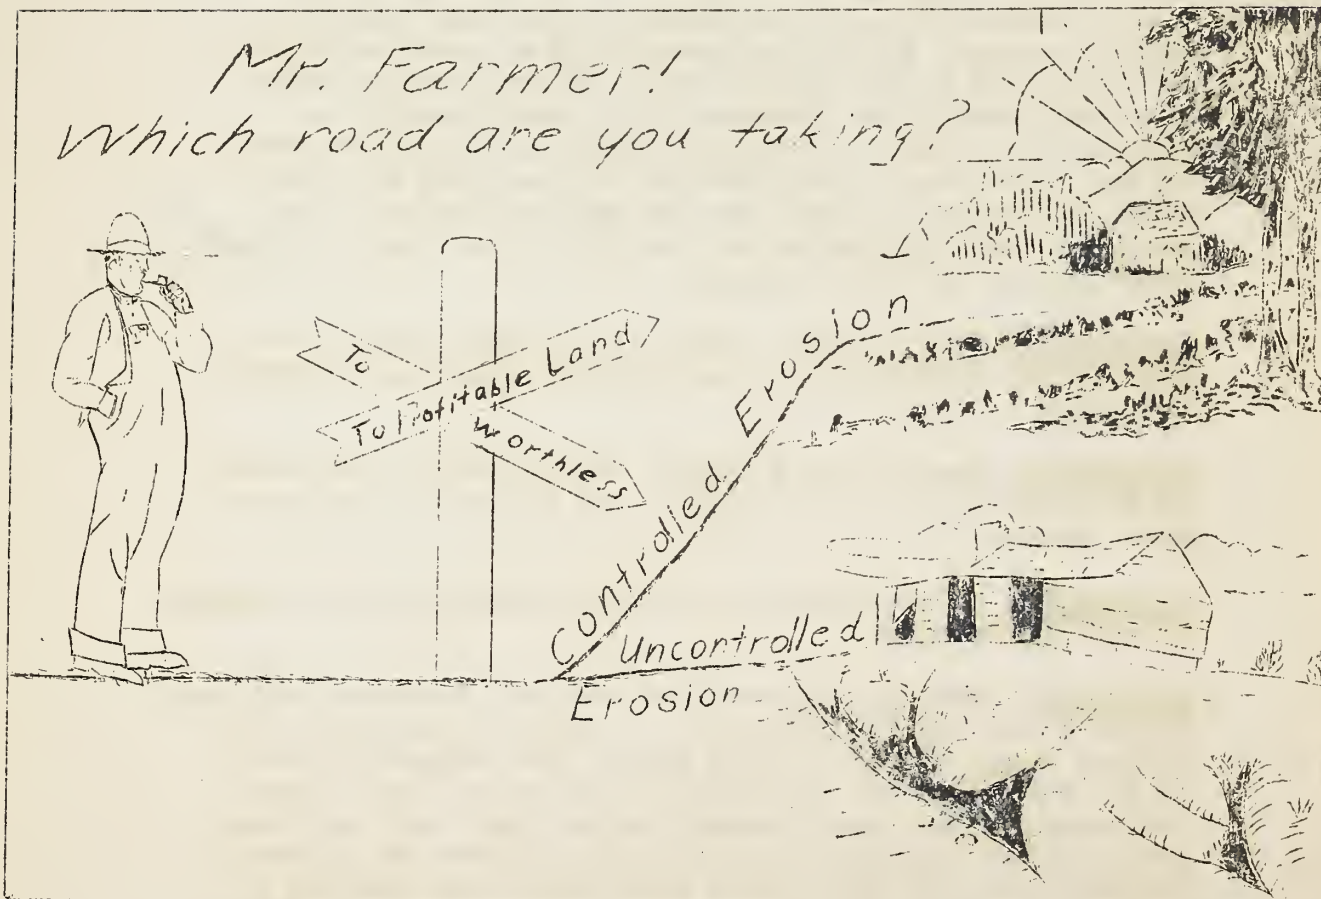 Mr. Farmer!
Which road are you taking?
To
Worthless
To Profitable Land
Controlled Erosion
Uncontrolled
Erosion